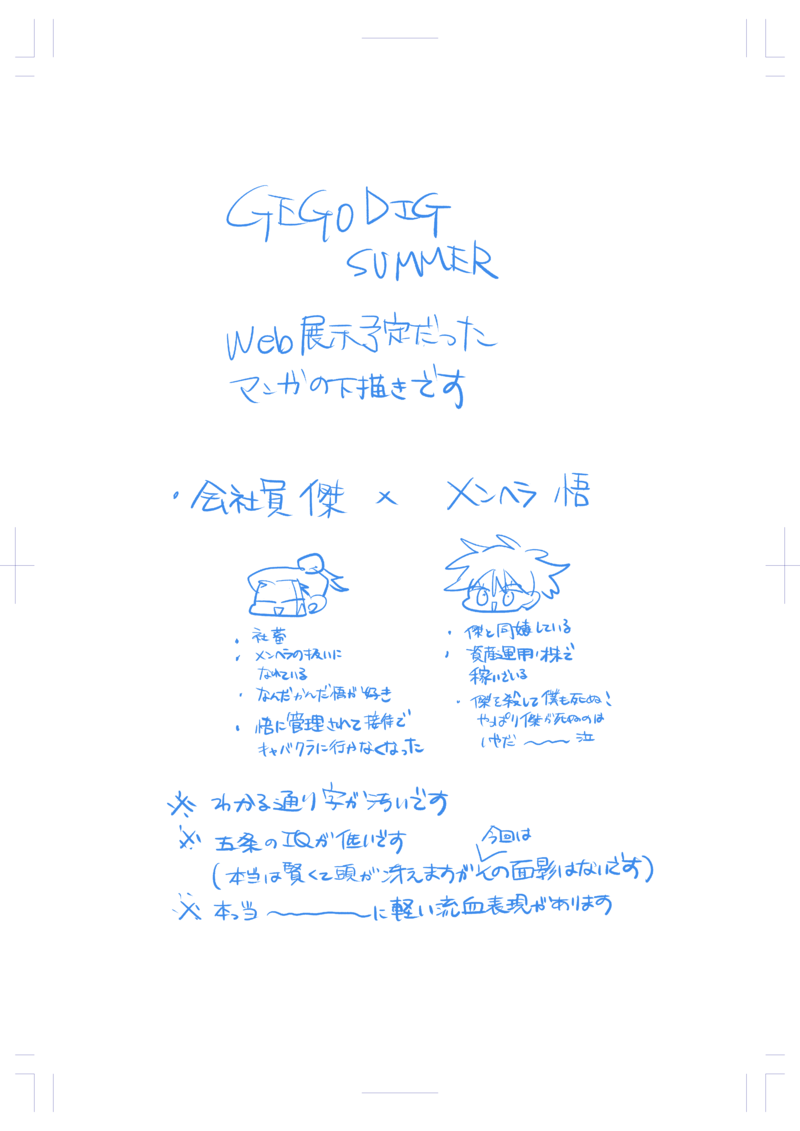 GEGO DIG
SUMMER
Web展示予定だった
マンガの下描きです
・会社員 傑 × メンヘラ 悟
・社畜
・メンヘラの扱いに
なれている
・なんだかんだ悟が好き
・悟に管理されて接待で
キャバクラに行かなくなった
・傑と同嬢している
・資産運用,株で
稼いでいる
・傑を殺して僕も死ぬ!
やっぱり傑が死ぬのは
いやだ 〜〜〜 泣
※ わかる通り字が汚いです
※ 五条のIQが低いです
今回は
(本当は賢くて頭が冴えますがその面影はないです)
※ 本っ当〜〜〜〜に軽い流血表現があります